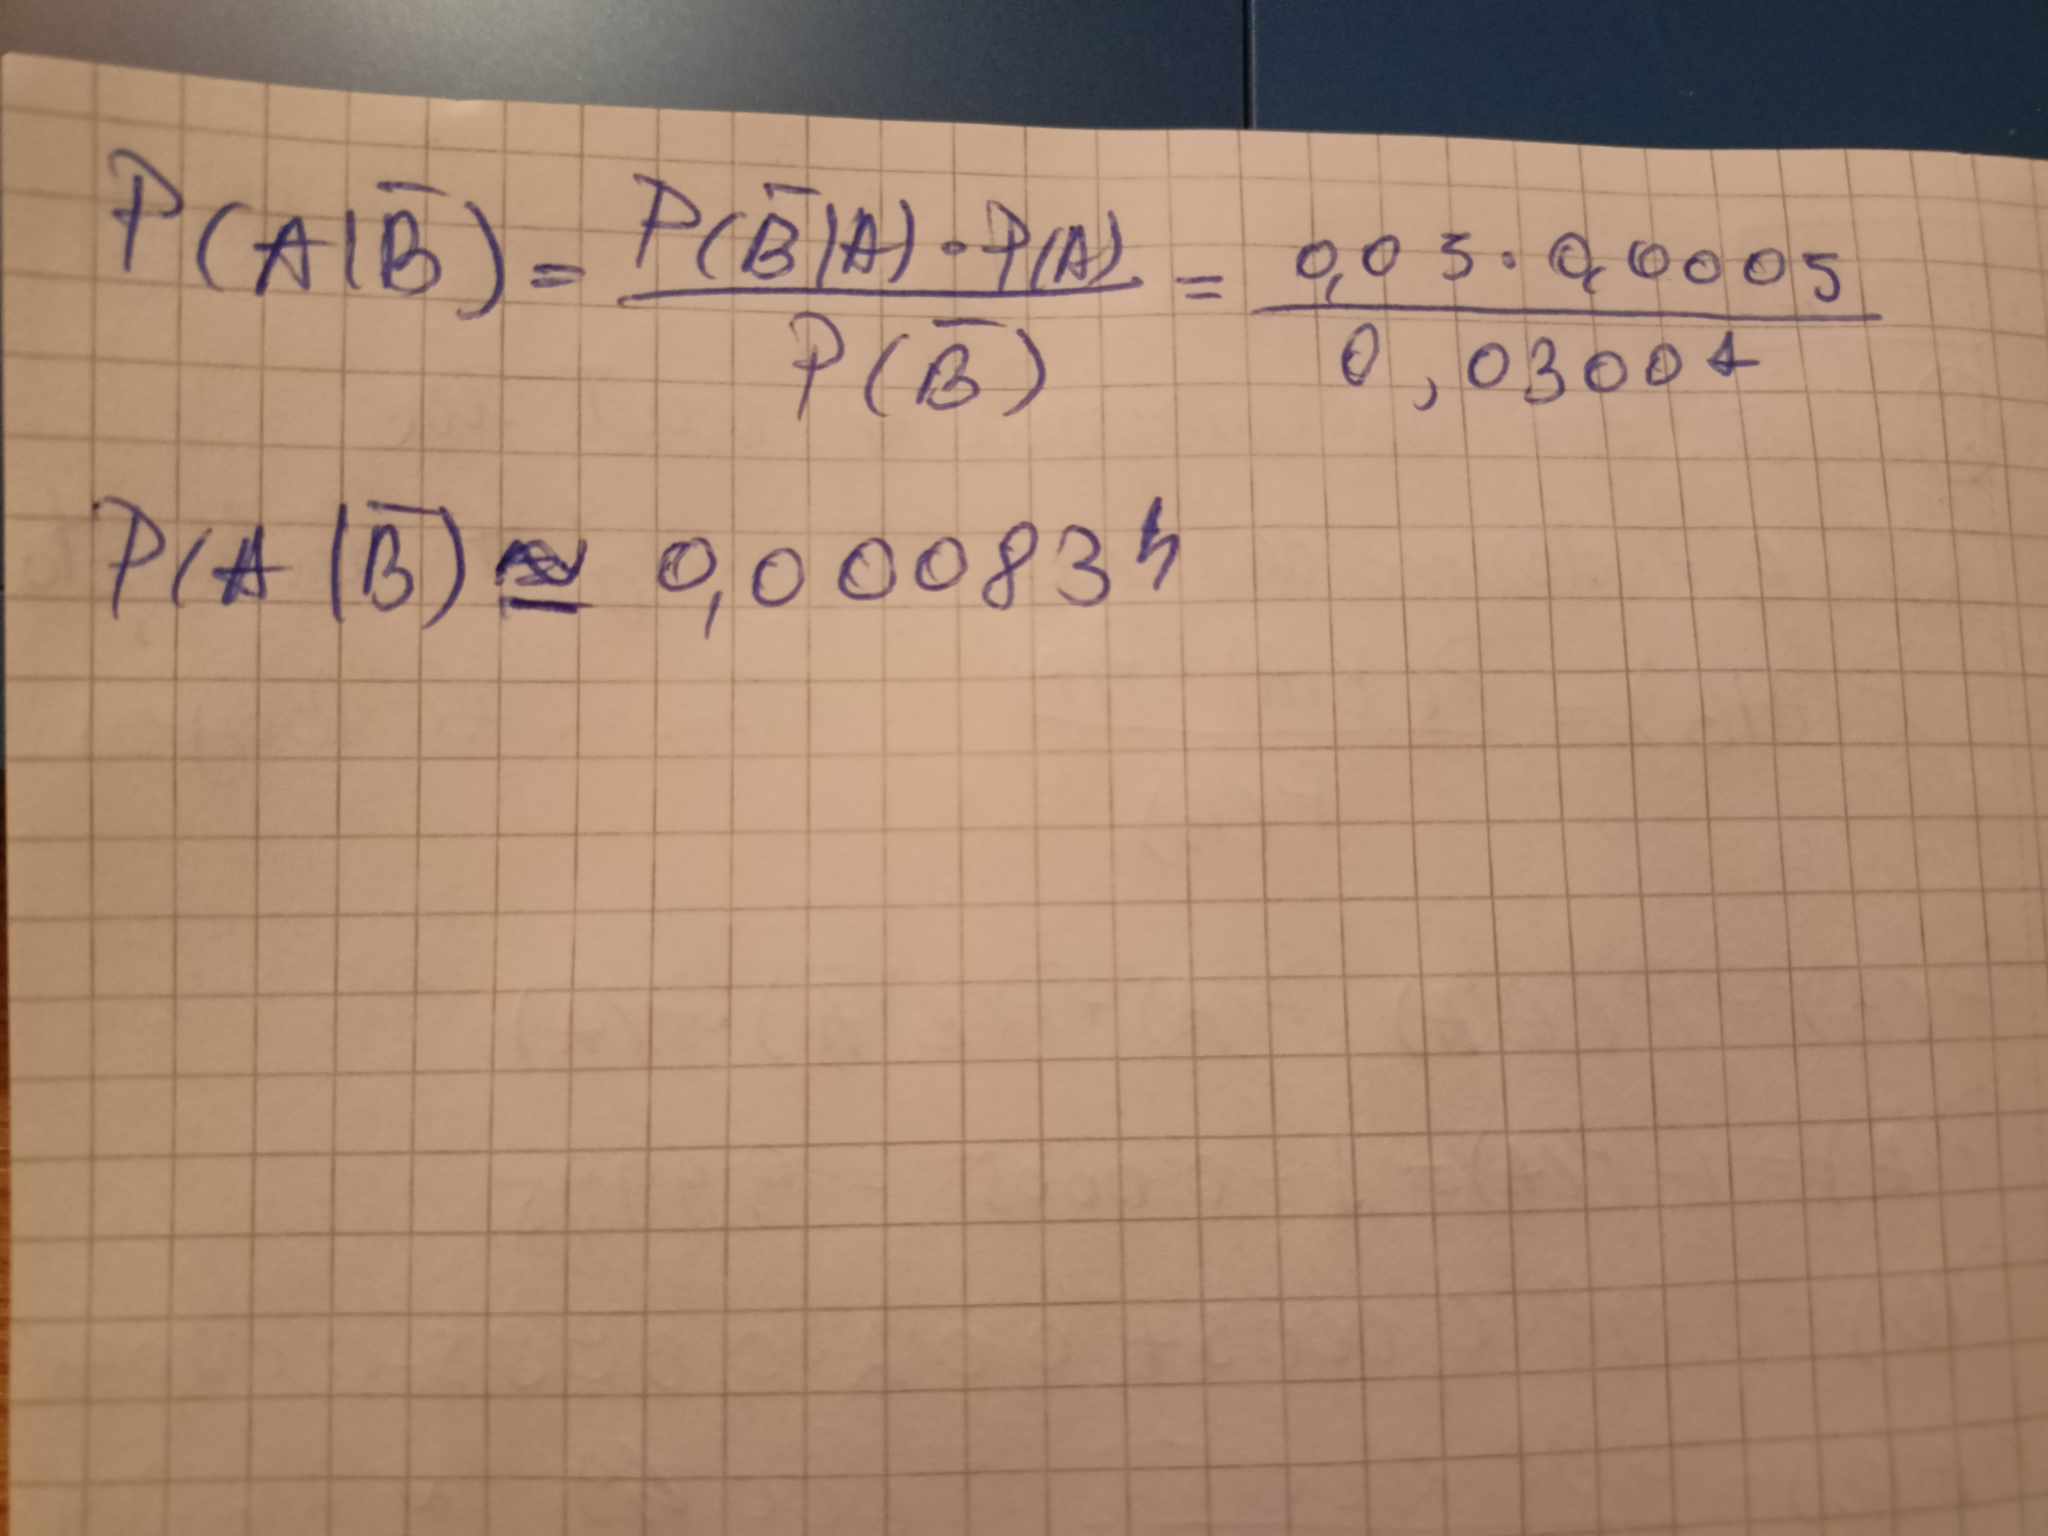 P(A|B̅) = P(B̅|A) · P(A) / P(B̅) = 0,05 · 0,0005 / 0,03001
P(A|B̅) ≅ 0,000834